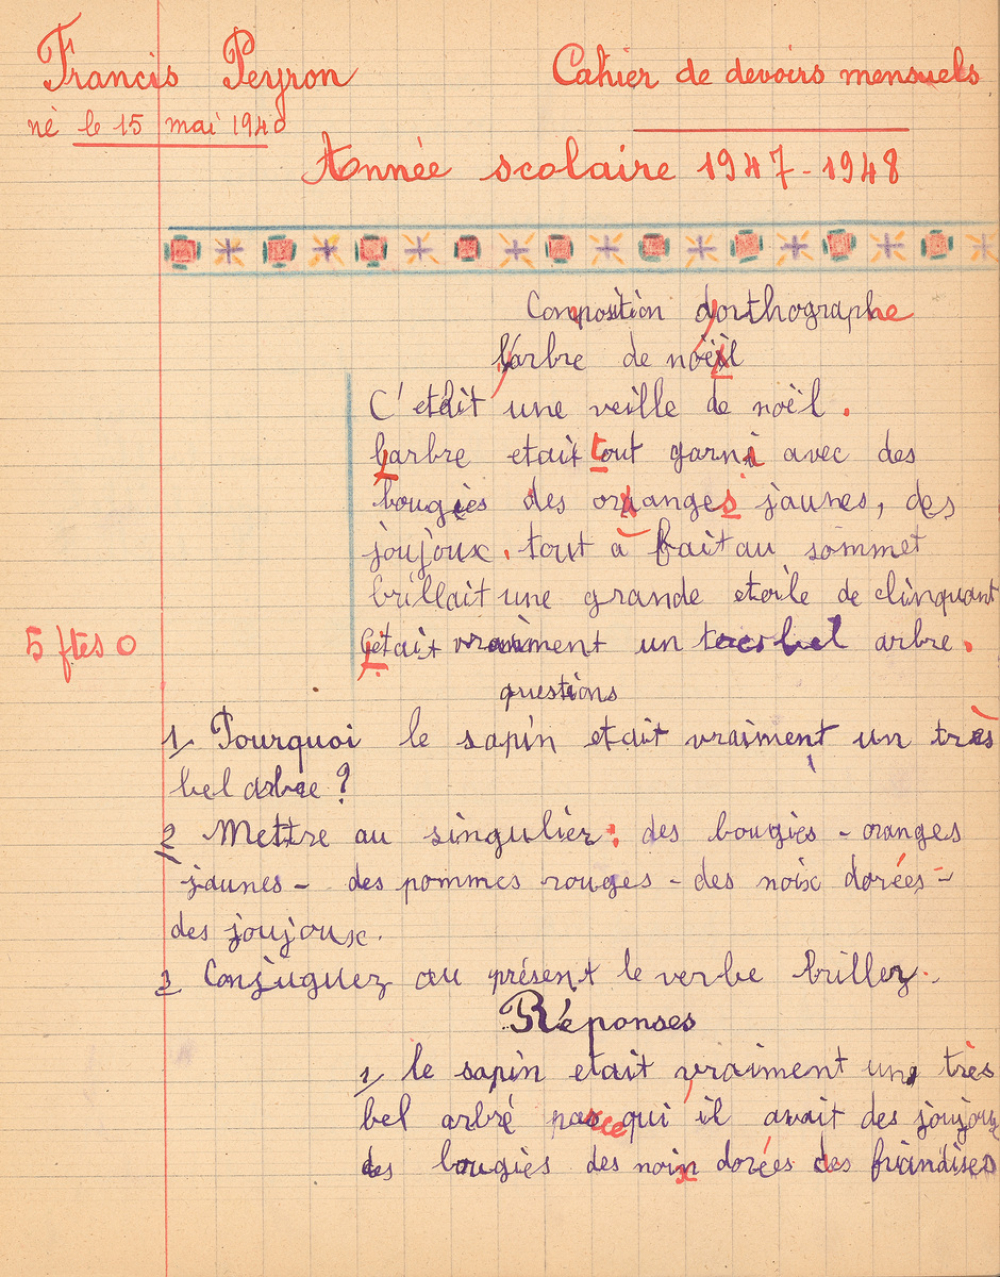 Francis Peyron
Cahier de devoirs mensuels
né le 15 mai 1940
Année scolaire 1947-1948
Composition d'orthographe
l'arbre de noël
C'etait une veille de noël.
L'arbre etait tout garni avec des
bougies des oranges jaunes, des
joujoux. tout à fait au sommet
brillait une grande etoile de clinquant
C'était vraiment un très bel arbre.
5 ftes 0
questions
1 Pourquoi le sapin etait vraiment un très
bel arbre ?
2 Mettre au singulier : des bougies - oranges
jaunes - des pommes rouges - des noix dorées -
des joujoux.
3 Conjuguez au présent le verbe briller.
Réponses
1 le sapin etait vraiment un très
bel arbre parce qui il avait des joujoux
des bougies des noix dorées des friandises